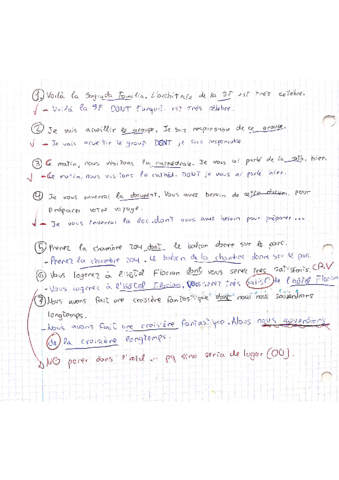 ① Voilà la Sagrada Familia. L'architecte de la SF est très célèbre.
- Voilà la SF DONT l'arqui. est très célèbre.
② Je vais accueillir le groupe. Je suis responsable de ce groupe.
- Je vais accueillir le group DONT je suis responsable
③ Ce matin, nous visitons la cathédrale. Je vous ai parlé de la cath. hier.
- Ce matin, nous visitons la cathéd. Dont je vous ai parlé hier.
④ Je vous enverrai le document. Vous avez besoin de document pour
préparer votre voyage.
- Je vous enverrai la doc. dont vous avez besoin pour préparer...
⑤ Prenez la chambre 204 dont le balcon donne sur le parc.
- Prenez la chambre 204. Le balcon de la chambre donne sur le parc.
⑥ Vous logerez à l'hôtel Florian dont vous serez très satisfaits
- Vous logerez à l'hôtel Florian. Vous serez très satisf. de l'hôtel Florian
⑦ Nous avons fait une croisière fantastique dont nous nous souviendrons
longtemps.
- Nous avons fait une croisière fantastique. Nous nous souviendrons
de la croisière longtemps.
NO poner dans l'hôtel pq sino seria de lugar (OÙ).